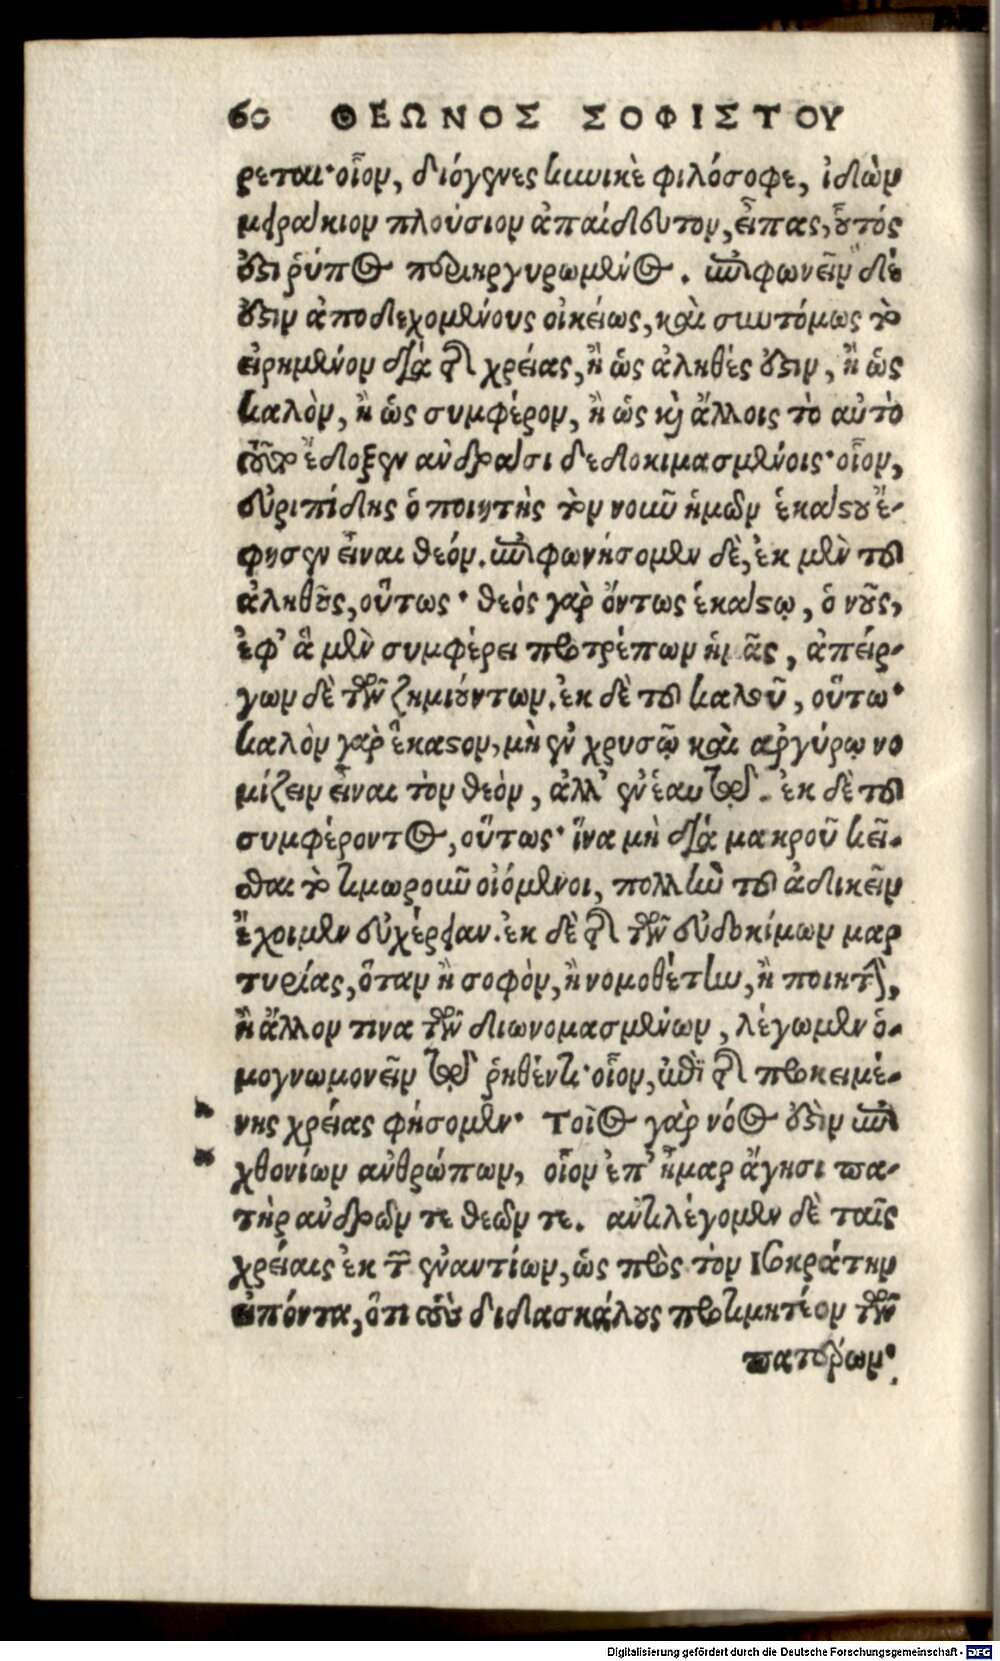 60 ΘΕΩΝΟΣ ΣΟΦΙΣΤΟΥ
ρεται· οἷον, διόγενες κυνικὲ φιλόσοφε, ἰδὼν
μειράκιον πλούσιον ἀπαίδευτον, εἶπας, οὗτός
ἐστι ῥύπος περιηργυρωμένος. ἐπιφωνεῖν δέ
ἐστιν ἀποδεχομένους οἰκείως, καὶ συντόμως τὸ
εἰρημένον διὰ τῆς χρείας, ἢ ὡς ἀληθές ἐστιν, ἢ ὡς
καλὸν, ἢ ὡς συμφέρον, ἢ ὡς καὶ ἄλλοις τὸ αὐτὸ
τοῦτο ἔδοξεν ἀνδράσι δεδοκιμασμένοις· οἷον,
εὐριπίδης ὁ ποιητὴς τὸν νοῦν ἡμῶν ἑκάστου ἔ-
φησεν εἶναι θεόν. ἐπιφωνήσομεν δὲ, ἐκ μὲν τοῦ
ἀληθοῦς, οὕτως· θεὸς γὰρ ὄντως ἑκάστῳ, ὁ νοῦς,
ἐφ' ἃ μὲν συμφέρει προτρέπων ἡμᾶς, ἀπείρ-
γων δὲ τῶν ζημιούντων. ἐκ δὲ τοῦ καλοῦ, οὕτω·
καλὸν γὰρ ἕκαστον, μὴ ἐν χρυσῷ καὶ ἀργύρῳ νο
μίζειν εἶναι τὸν θεὸν, ἀλλ' ἐν ἑαυτῷ. ἐκ δὲ τοῦ
συμφέροντος, οὕτως· ἵνα μὴ διὰ μακροῦ κεῖ-
σθαι τὸ τιμωροῦν οἰόμενοι, πολλὴν τοῦ ἀδικεῖν
ἔχοιμεν εὐχέρειαν. ἐκ δὲ τῆς τῶν εὐδοκίμων μαρ
τυρίας, ὅταν ἢ σοφὸν, ἢ νομοθέτην, ἢ ποιητὴν,
ἢ ἄλλον τινα τῶν διωνομασμένων, λέγωμεν ὁ-
μογνωμονεῖν τῷ ῥηθέντι· οἷον, ἐπὶ τῆς προκειμέ-
νης χρείας φήσομεν· Τοῖος γὰρ νόος ἐστὶν ἐπι
χθονίων ἀνθρώπων, οἷον ἐπ' ἦμαρ ἄγησι πα-
τὴρ ἀνδρῶν τε θεῶν τε. ἀντιλέγομεν δὲ ταῖς
χρείαις ἐκ τῶν ἐναντίων, ὡς πρὸς τὸν Ισοκράτην
εἰπόντα, ὅτι τοὺς διδασκάλους προτιμητέον τῶν
πατέρων·
Digitalisierung gefördert durch die Deutsche Forschungsgemeinschaft - DFG